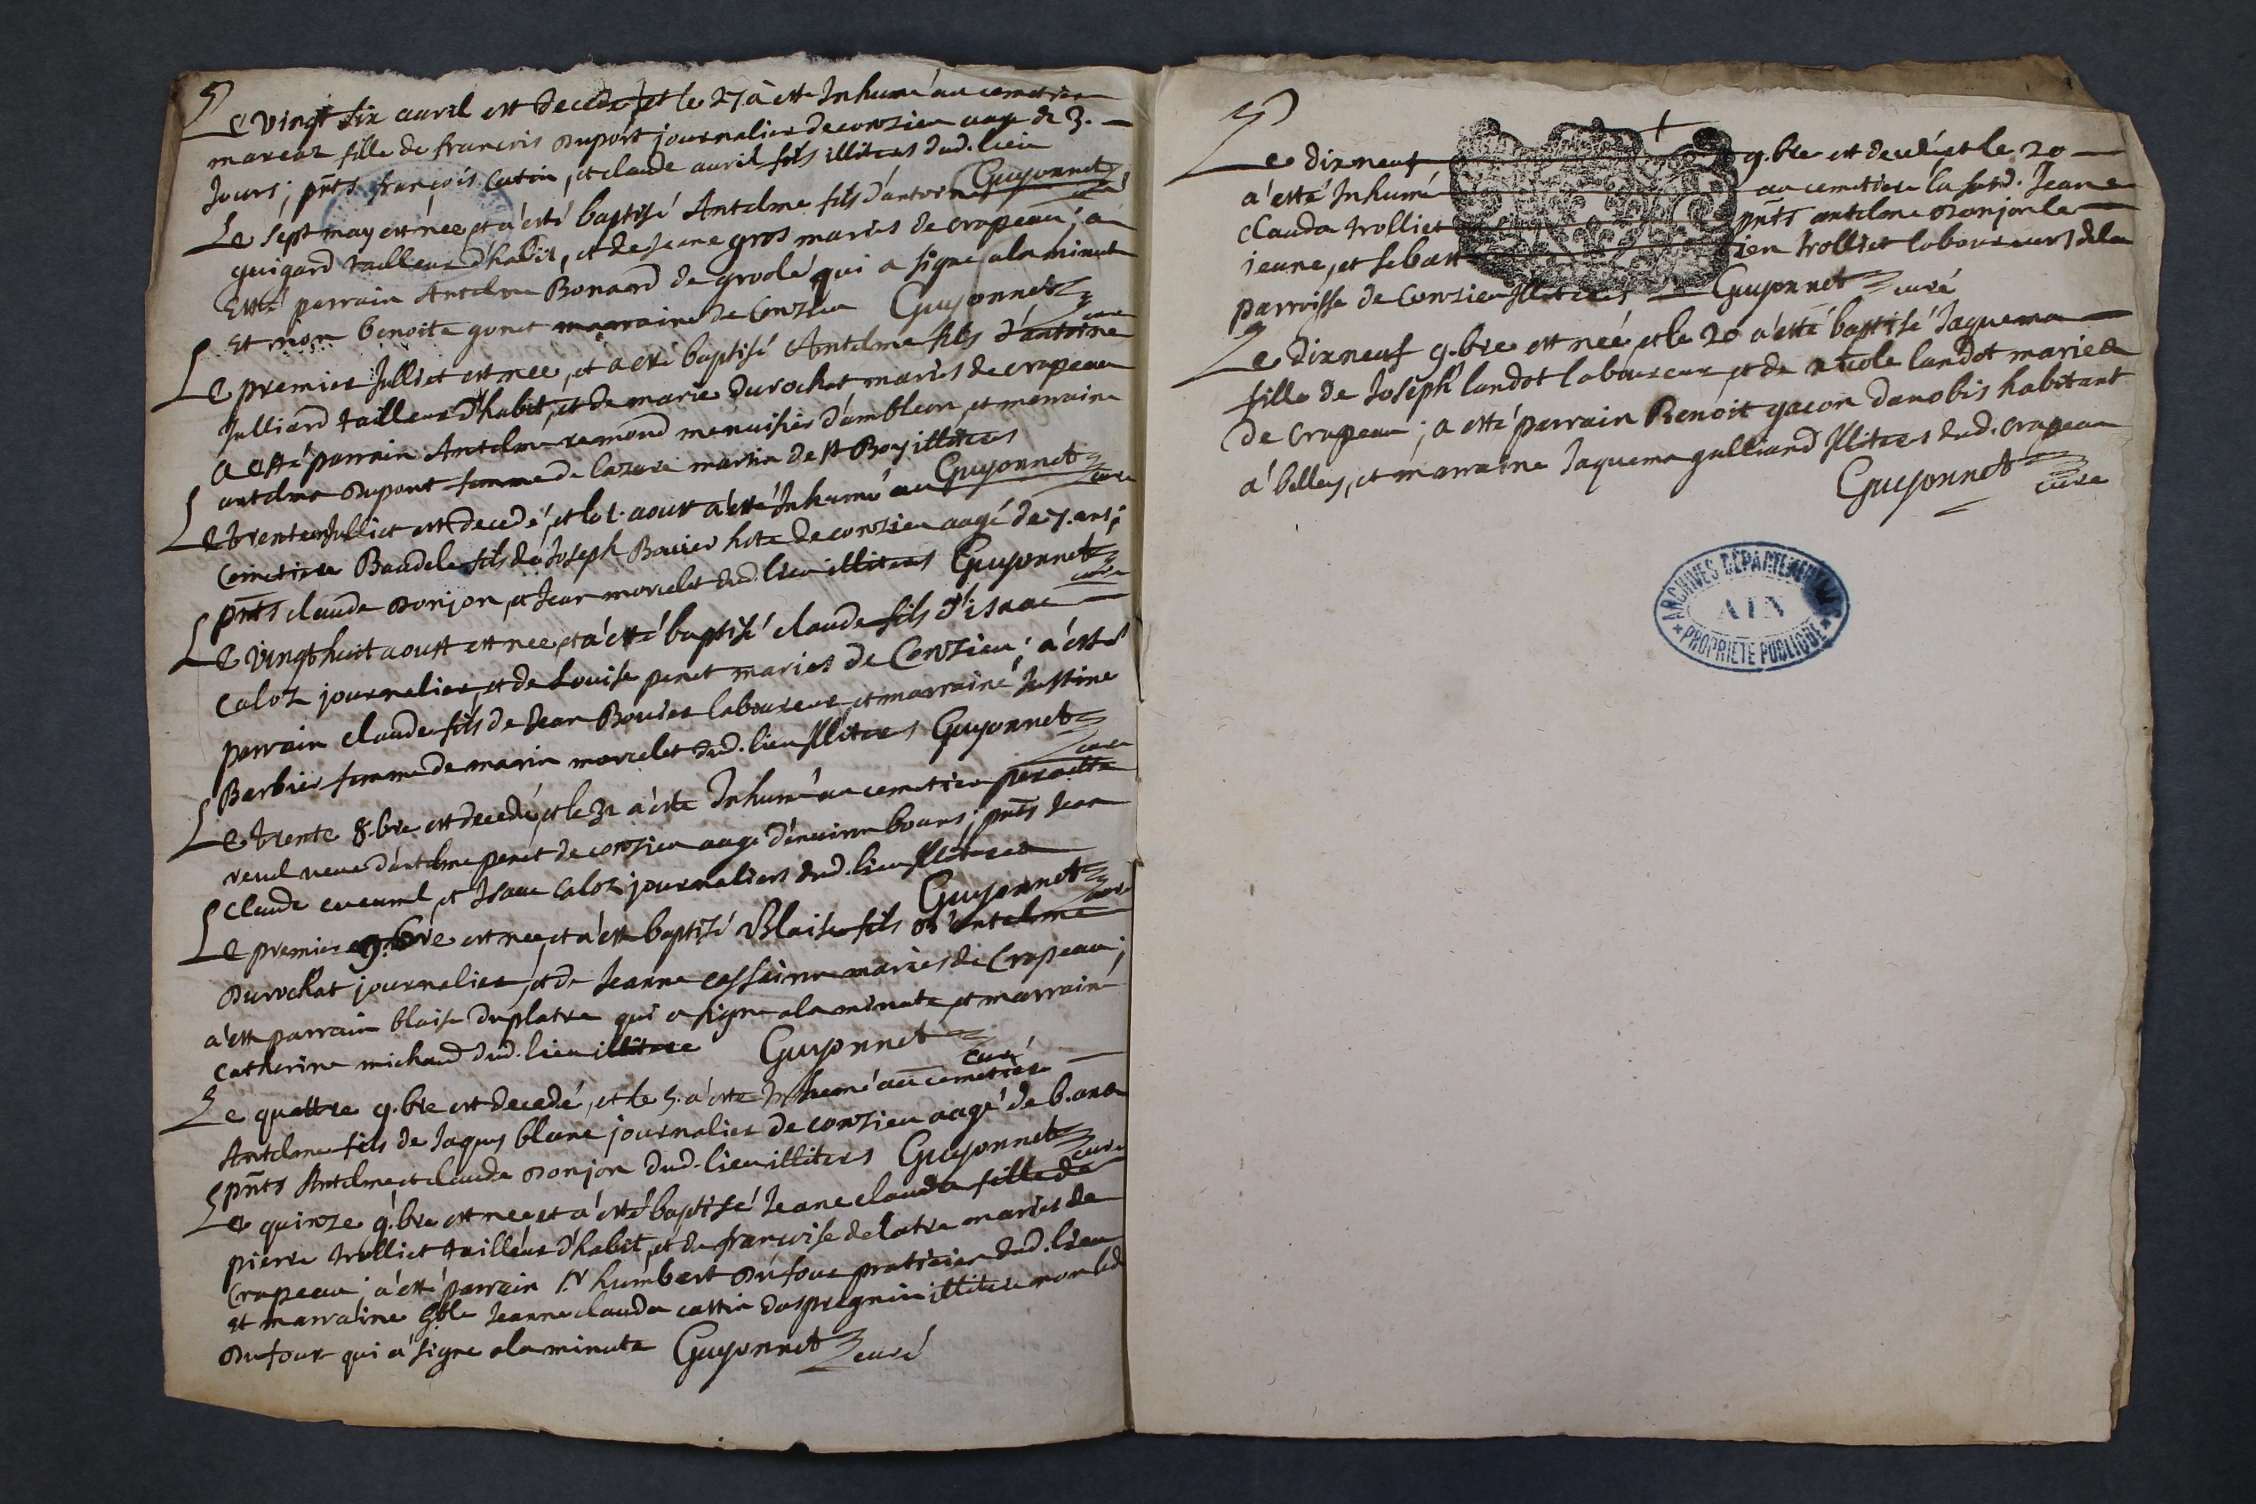 Le vingt six avril est decedé, et le 27 a esté Inhumé au cemetiere
fille de francois Dupont journalier de conzieu aagé de 3.
Jours; pnts francois Cutin, et claude avril fils illiteres dud. lieu
Guyonnet curé
Le sept may est née et a ésté baptisé Antelme fils d'antoine
guigard tailleur d'habit, et de Jeane gros mariés de crapeau; a
Esté parrain Antelme Bonard de grolé qui a signé a la minute
Et benoite gonet marraine de Conzieu Guyonnet curé
Le premier Julliet est née, et a esté baptisé Antelme fils d'antoine
Julliard tailleur d'habit, et de marie durochat mariés de crapeau
a esté parrain Antelme remond menuisier d'ambleon, et marraine
antelma Dupont femme de lazare martin de st Boy illiteres
Guyonnet curé
Le trente Julliet est decedé, et le 1. aout a esté Inhumé au
Cemetiere Baudele fils de Joseph Bovier hote de conzieu aagé de 7. ans;
pnts claude Donjon, et Jean morcelet dud. lieu illiteres Guyonnet curé
Le vingt huit aoust est née, et a esté baptisé claude fils d'isaac
Caloz journalier, et de Louise penet mariés de Conzieu; a esté
parrain claude fils de Jean Bovier laboureur, et marraine Justine
Barbier femme de marin morcelet dud. lieu Illiteres Guyonnet curé
Le trente 8.bre est decedé, et le 31 a esté Inhumé au cemetiere pernette
revel veuve d'antelme penet de conzieu aagé d'environ ; pnts Jean
Claude et Isaac Caloz journaliers dud. lieu Illiteres
Guyonnet curé
Le premier 9.bre est née, et a esté baptisé Blaise fils d'Antelme
Durochat journalier, et de Jeanne cassainne mariés de Crapeau;
a esté parrain blaise duplatre qui a signé a la minute, et marraine
Catherine michaud dud. lieu illitere Guyonnet curé
Le quattre 9.bre est decedé, et le 5. a esté Inhumé au cemetiere
Antelme fils de Jaques blanc journalier de conzieu aagé de 6. ans
pnts Antelme et claude Donjon dud. lieu illiteres Guyonnet curé
Le quinze 9.bre est née et a ésté baptisé Jeane clauda fille de
pierre trolliet tailleur d'habit, et de francoise delatre mariés de
Crapeau; a esté parrain Sr humbert Dufour praticien dud. lieu
et marraine hble Jeanne clauda cattin dospregnin illitere non led
Dufour qui a signé a la minute Guyonnet curé
Le dixneuf 9.bre est decedé et le 20
a esté Inhumé au cemetiere la Jeane
Clauda trolliet pnts antelme Donjon le
jeune, et sebastien trolliet laboureurs de la
parroisse de Conzieu Illiteres Guyonnet curé
Le dixneuf 9.bre est née, et le 20 a esté baptisé Jaquema
fille de Joseph landot laboureur, et de nicole landot mariés
de Crapeau; a esté parrain Benoit gacon danobis habitant
a belley, et marraine Jaquema gulliand Illiteres dud. crapeau
Guyonnet curé
ARCHIVES DÉPARTEMENTALES
AIN
PROPRIÉTÉ PUBLIQUE